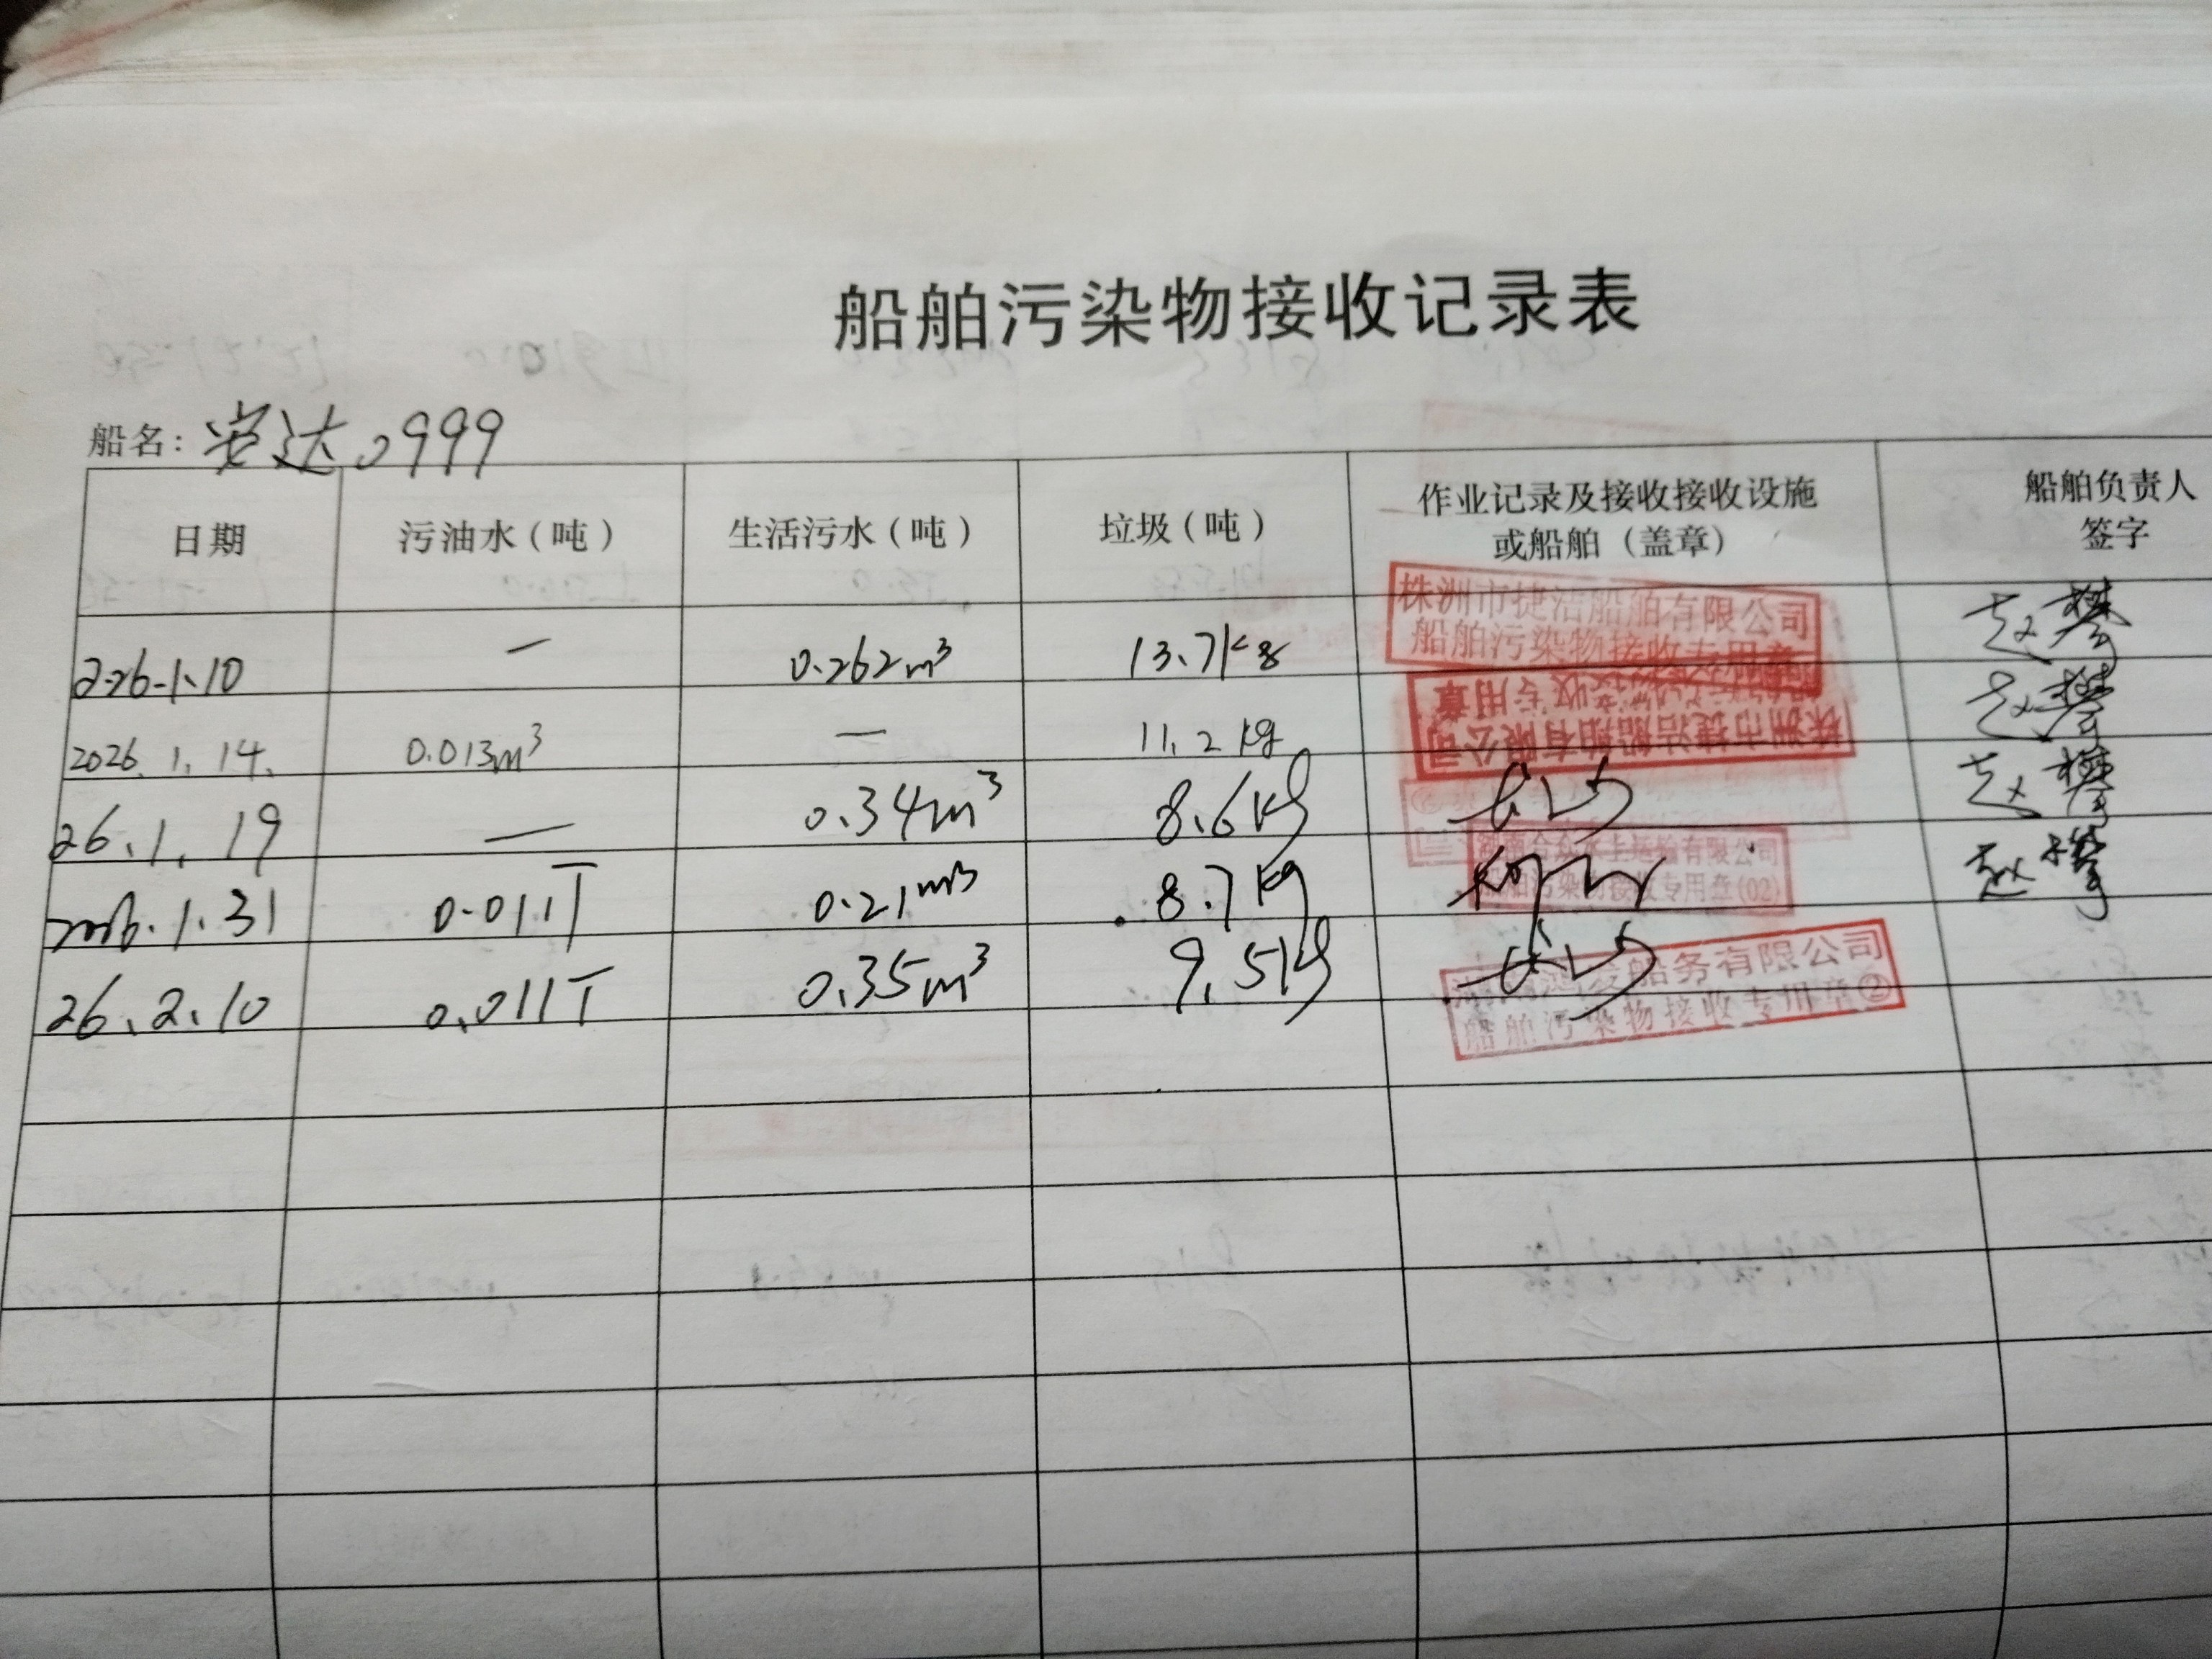 船舶污染物接收记录表
船名: 安达0999
日期 污油水（吨） 生活污水（吨） 垃圾（吨） 作业记录及接收接收设施或船舶（盖章） 船舶负责人签字
2026.1.10 — 0.262m³ 13.7kg 株洲市捷洁船舶有限公司 船舶污染物接收专用章 赵
2026.1.14. 0.013m³ — 11.2kg 株洲市捷洁船舶有限公司 船舶污染物接收专用章 赵
26.1.19 — 0.34m³ 8.6kg 赵
2026.1.31 0.011T 0.21m³ 8.7kg 水上运输有限公司 船舶污染物接收专用章(02) 赵
26.2.10 0.011T 0.35m³ 9.5kg 船务有限公司 船舶污染物接收专用章②